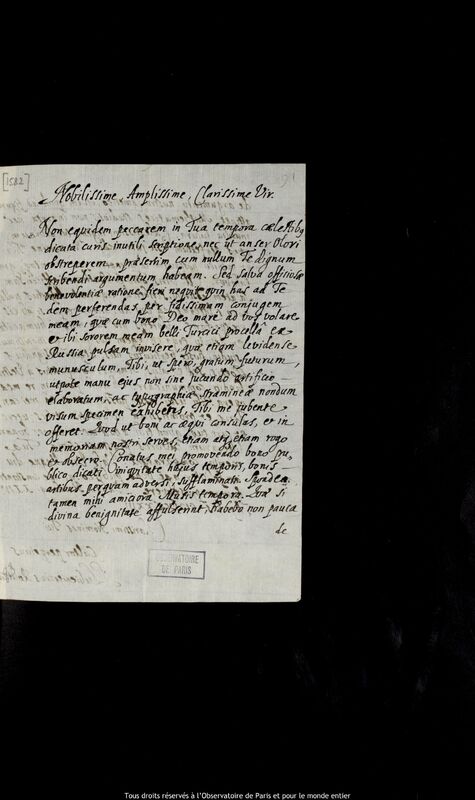 [1582]
Nobilissime, Amplissime, Clarissime Vir.
Non equidem peccarem in Tua tempora cælestibq
dicata curis inutili scriptione, nec ut anser Olori
obstreperem, præsertim cum nullum Te dignum
scribendi argumentum habeam. Sed salva officiosæ
benevolentiæ ratione, fieri nequit quin has ad Te
dem perferendas per fidissimam conjugem
meam, quæ cum bono Deo mare ad vos volare
et ibi sororem meam belli Turcici procellâ ex
Russia pulsam invisere, quæ etiam levidense
munusculum, Tibi, ut spero, gratum futurum,
utpote manu ejus non sine jucundo artificio
elaboratum, ac typographiæ stramineæ nondum
visum specimen exhibens, Tibi me jubente
offeret. Quod ut boni ac æqui consulas, et in
memoriam nostri serves, etiam atq etiam rogo
et obsecro. Conatus mei promovendo bono pu,
blico dicati iniquitate hujus temporis, bonis
artibus perquam adversi, sufflaminati. Spondeo
tamen mihi amiciora Musis tempora. Quæ si
divina benignitate affulserint, habebo non pauca
de
OBSERVATOIRE
DE PARIS
Tous droits réservés à l'Observatoire de Paris et pour le monde entier